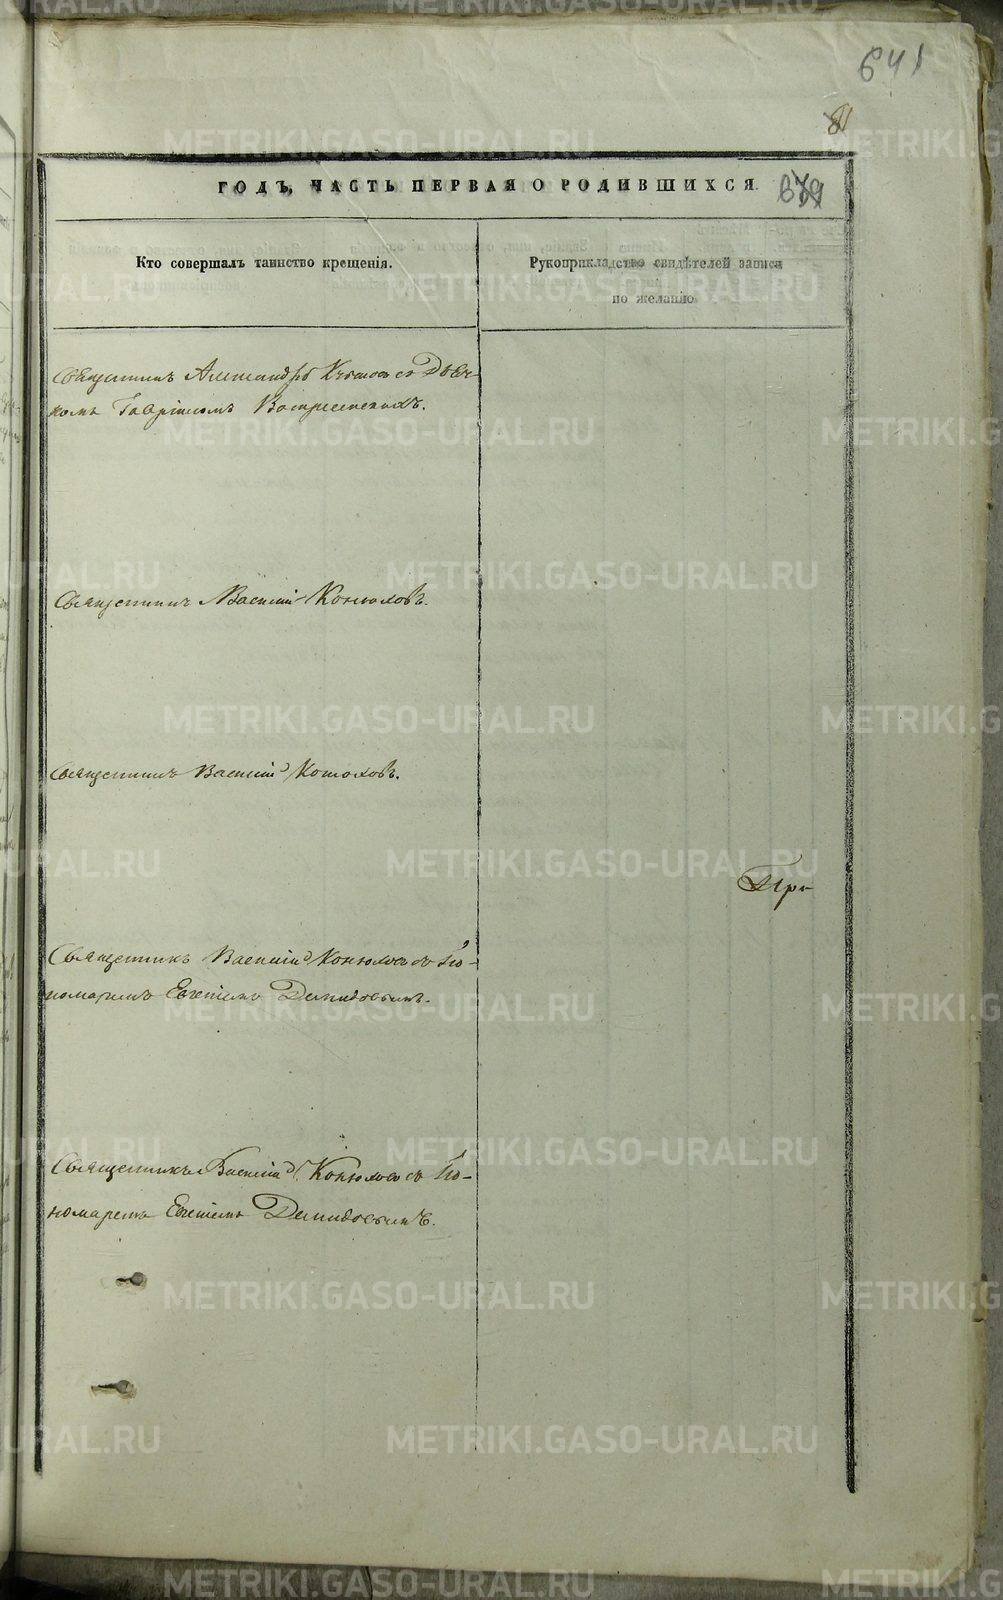 641
81
ГОДЪ, ЧАСТЬ ПЕРВАЯ О РОДИВШИХСЯ.
Кто совершалъ таинство крещенія.
Рукоприкладство свидѣтелей записи
по желанію
Священникъ Александръ съ Дьяч-
комъ Гавріиломъ Воскресенскихъ.
Священникъ Василій Конюховъ.
Священникъ Василій Конюховъ.
При
Священникъ Василій Конюховъ съ По-
номаремъ Евгеніемъ Демидовымъ.
Священникъ Василій Конюховъ съ По-
номаремъ Евгеніемъ Демидовымъ.
METRIKI.GASO-URAL.RU